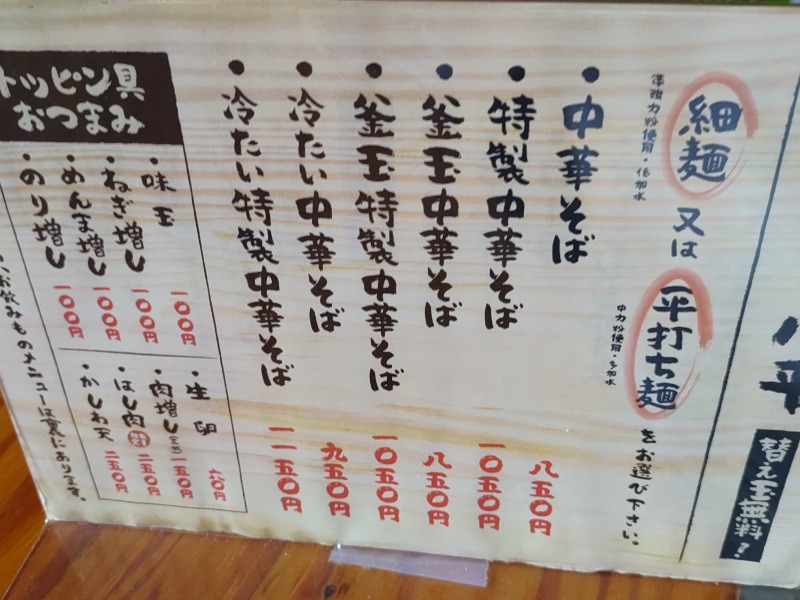 替え玉無料!
細麺
又は
平打ち麺
をお選び下さい。
準強力粉使用・低加水
中力粉使用・多加水
・中華そば
八五〇円
・特製中華そば
一〇五〇円
・釜玉中華そば
八五〇円
・釜玉特製中華そば
一〇五〇円
・冷たい中華そば
九五〇円
・冷たい特製中華そば
一一五〇円
トッピン具
おつまみ
・味玉
一〇〇円
・ねぎ増し
一〇〇円
・めんま増し
一〇〇円
・のり増し
一〇〇円
・生卵
六〇円
・肉増し
一五〇円
・はし肉
二五〇円
・かしわ天
二五〇円
お飲みものメニューは裏にあります。